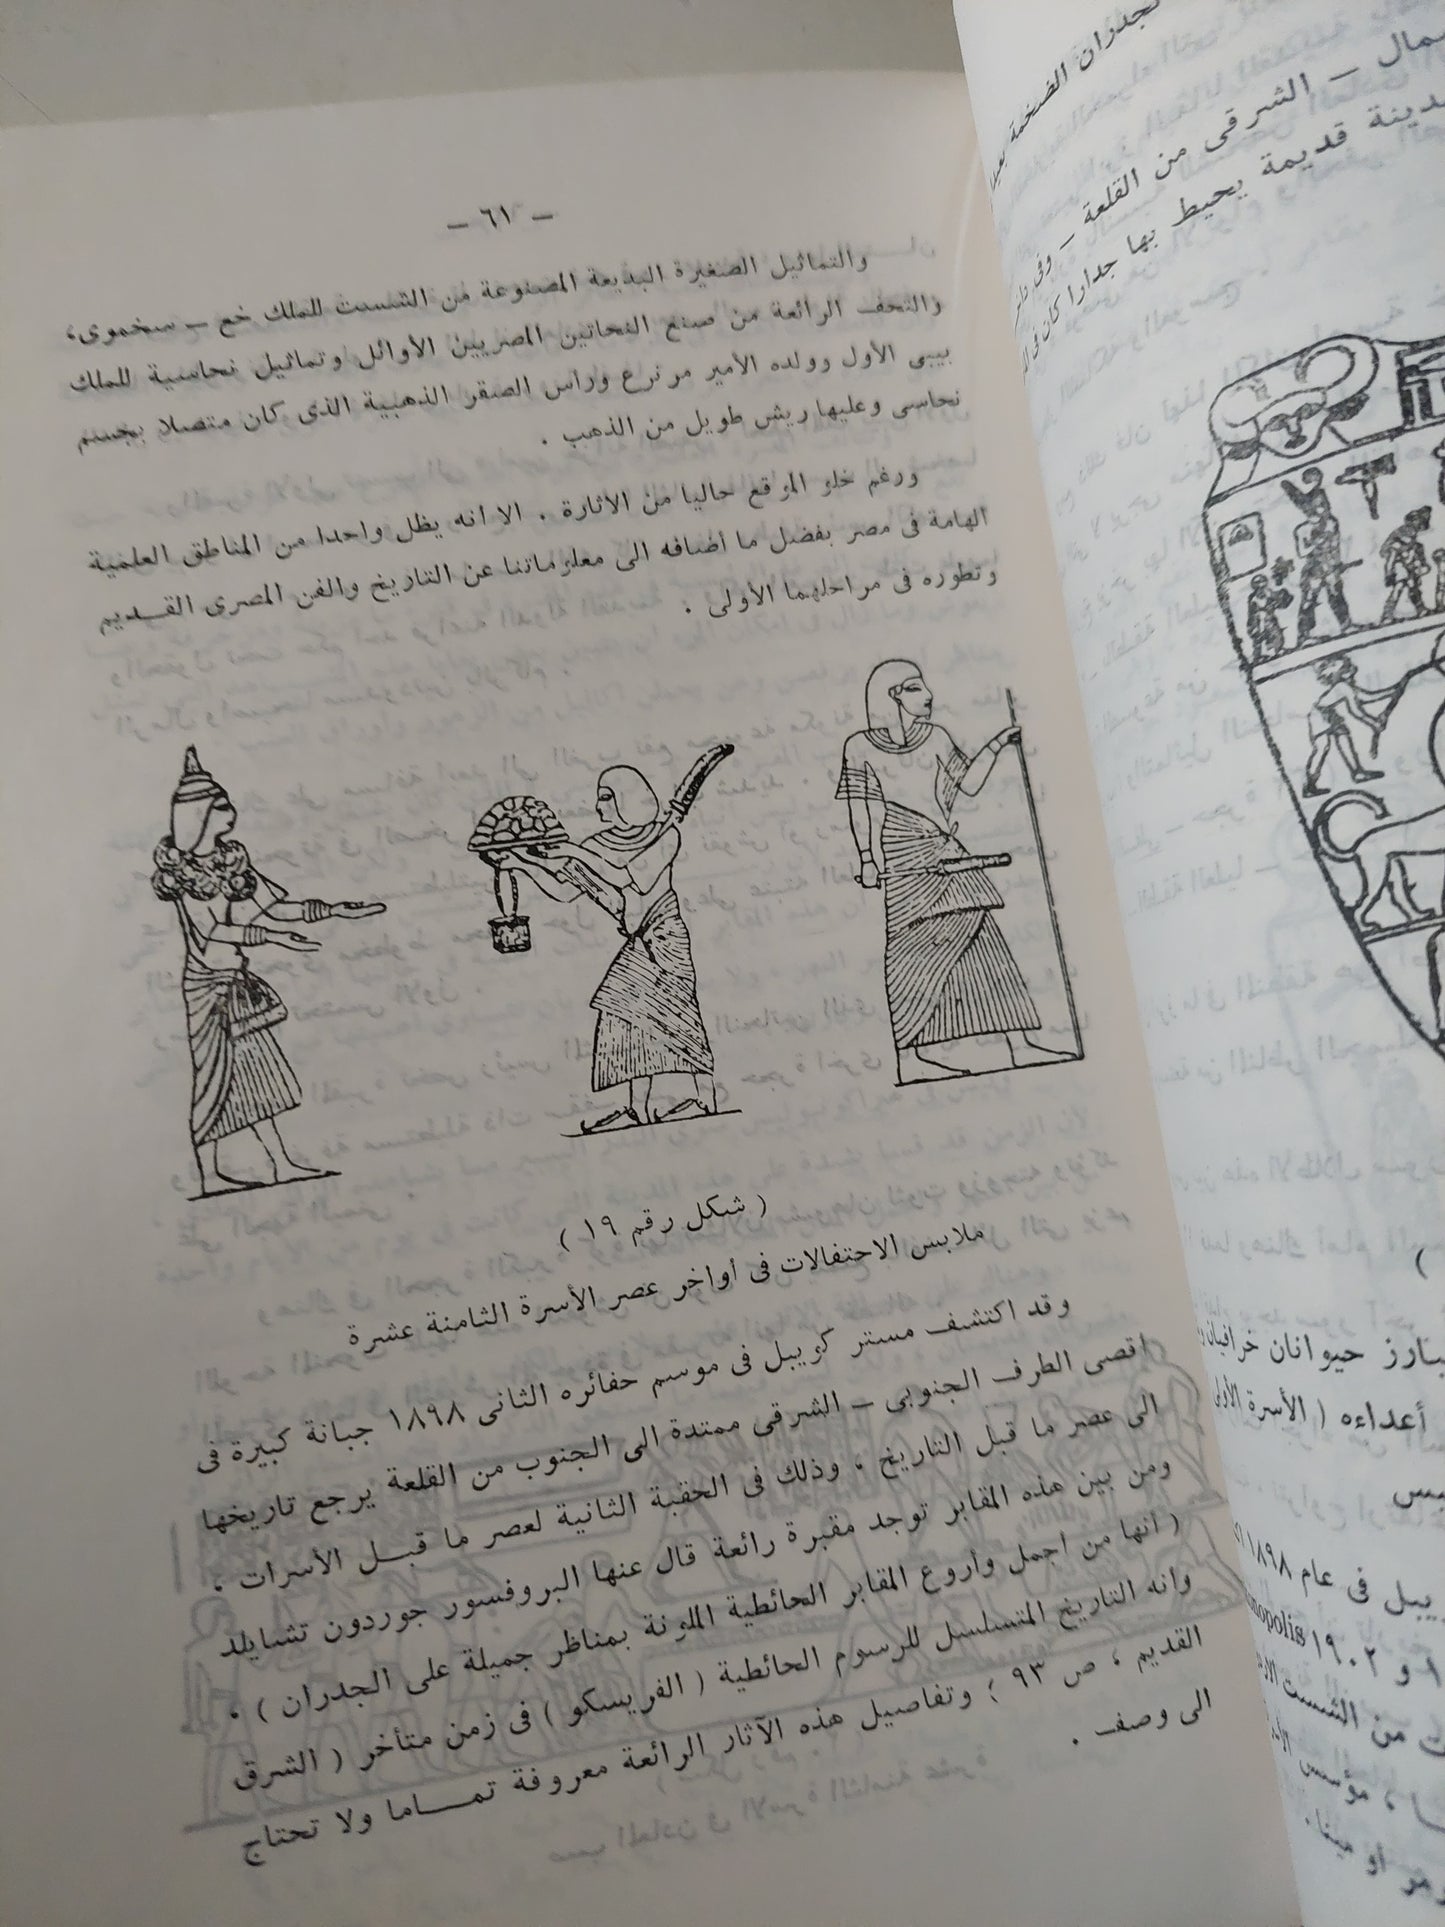 — ٦١ —
والتماثيل الصغيرة البديعة المصنوعة من الشست للملك خع — سخموى،
والتحف الرائعة من صنع النحاتين المصريين الأوائل وتماثيل نحاسية للملك
بيبى الأول وولده الأمير مرنرع ورأس الصقر الذهبية الذى كان متصلا بجسم
نحاسى وعليها ريش طويل من الذهب .
ورغم خلو الموقع حاليا من الاثارة . الا انه يظل واحدا من المناطق العلمية
الهامة فى مصر بفضل ما أضافه الى معلوماتنا عن التاريخ والفن المصرى القـديم
وتطوره فى مراحلهما الأولى .
( شكل رقم ١٩ )
ملابس الاحتفالات فى أواخر عصر الأسرة الثامنة عشرة
وقد اكتشف مستر كويبل فى موسم حفائره الثانى ١٨٩٨ جبانة كبيرة فى
اقصى الطرف الجنوبى — الشرقى ممتدة الى الجنوب من القلعة يرجع تاريخها
الى عصر ما قبل التاريخ ، وذلك فى الحقبة الثانية لعصر ما قبـل الأسرات ،
ومن بين هذه المقابر توجد مقبرة رائعة قال عنها البروفسور جوردون تشايلد
( انها من اجمل وأروع المقابر الحائطية الملونة بمناظر جميلة على الجدران ) .
وانه التاريخ المتسلسل للرسوم الحائطية ( الفريسكو ) فى زمن متأخر ( الشرق
القديم ، ص ٩٣ ) وتفاصيل هذه الآثار الرائعة معروفة تمـــاما ولا تحتاج
الى وصف .
الضخمة
الشرقى من القلعة — وفى
قديمة يحيط بها جدارا كان فى
حيوانان
أعداءه ( الأسرة الأولى
فى عام ١٨٩٨
و ١٩٠٢
من الشست
مؤسس
أو مينا.